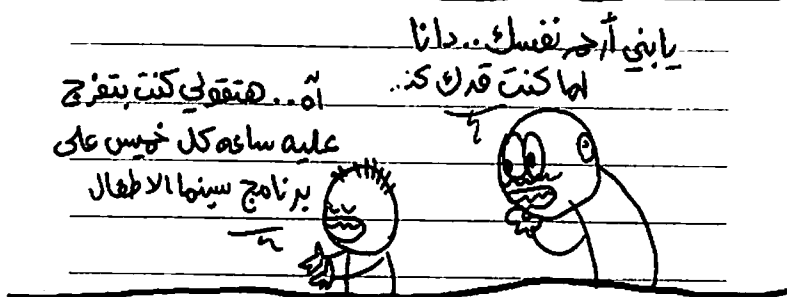 يابني أرحم نفسك.. دانا
لما كنت قدك كنـ..
آه.. هتقولي كنت بتفرج
عليه ساعه كل خميس على
برنامج سينما الاطفال